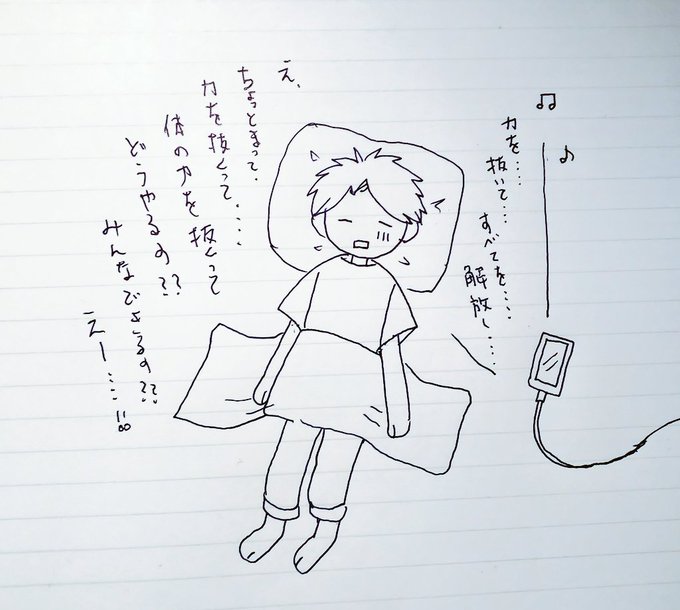 力を‥‥
抜いて‥‥
すべてを‥‥
解放し‥‥
え、
ちょっとまって、
力を抜くって‥‥
体の力を抜くって
どうやるの??
みんなできるの???
えー‥‥!!